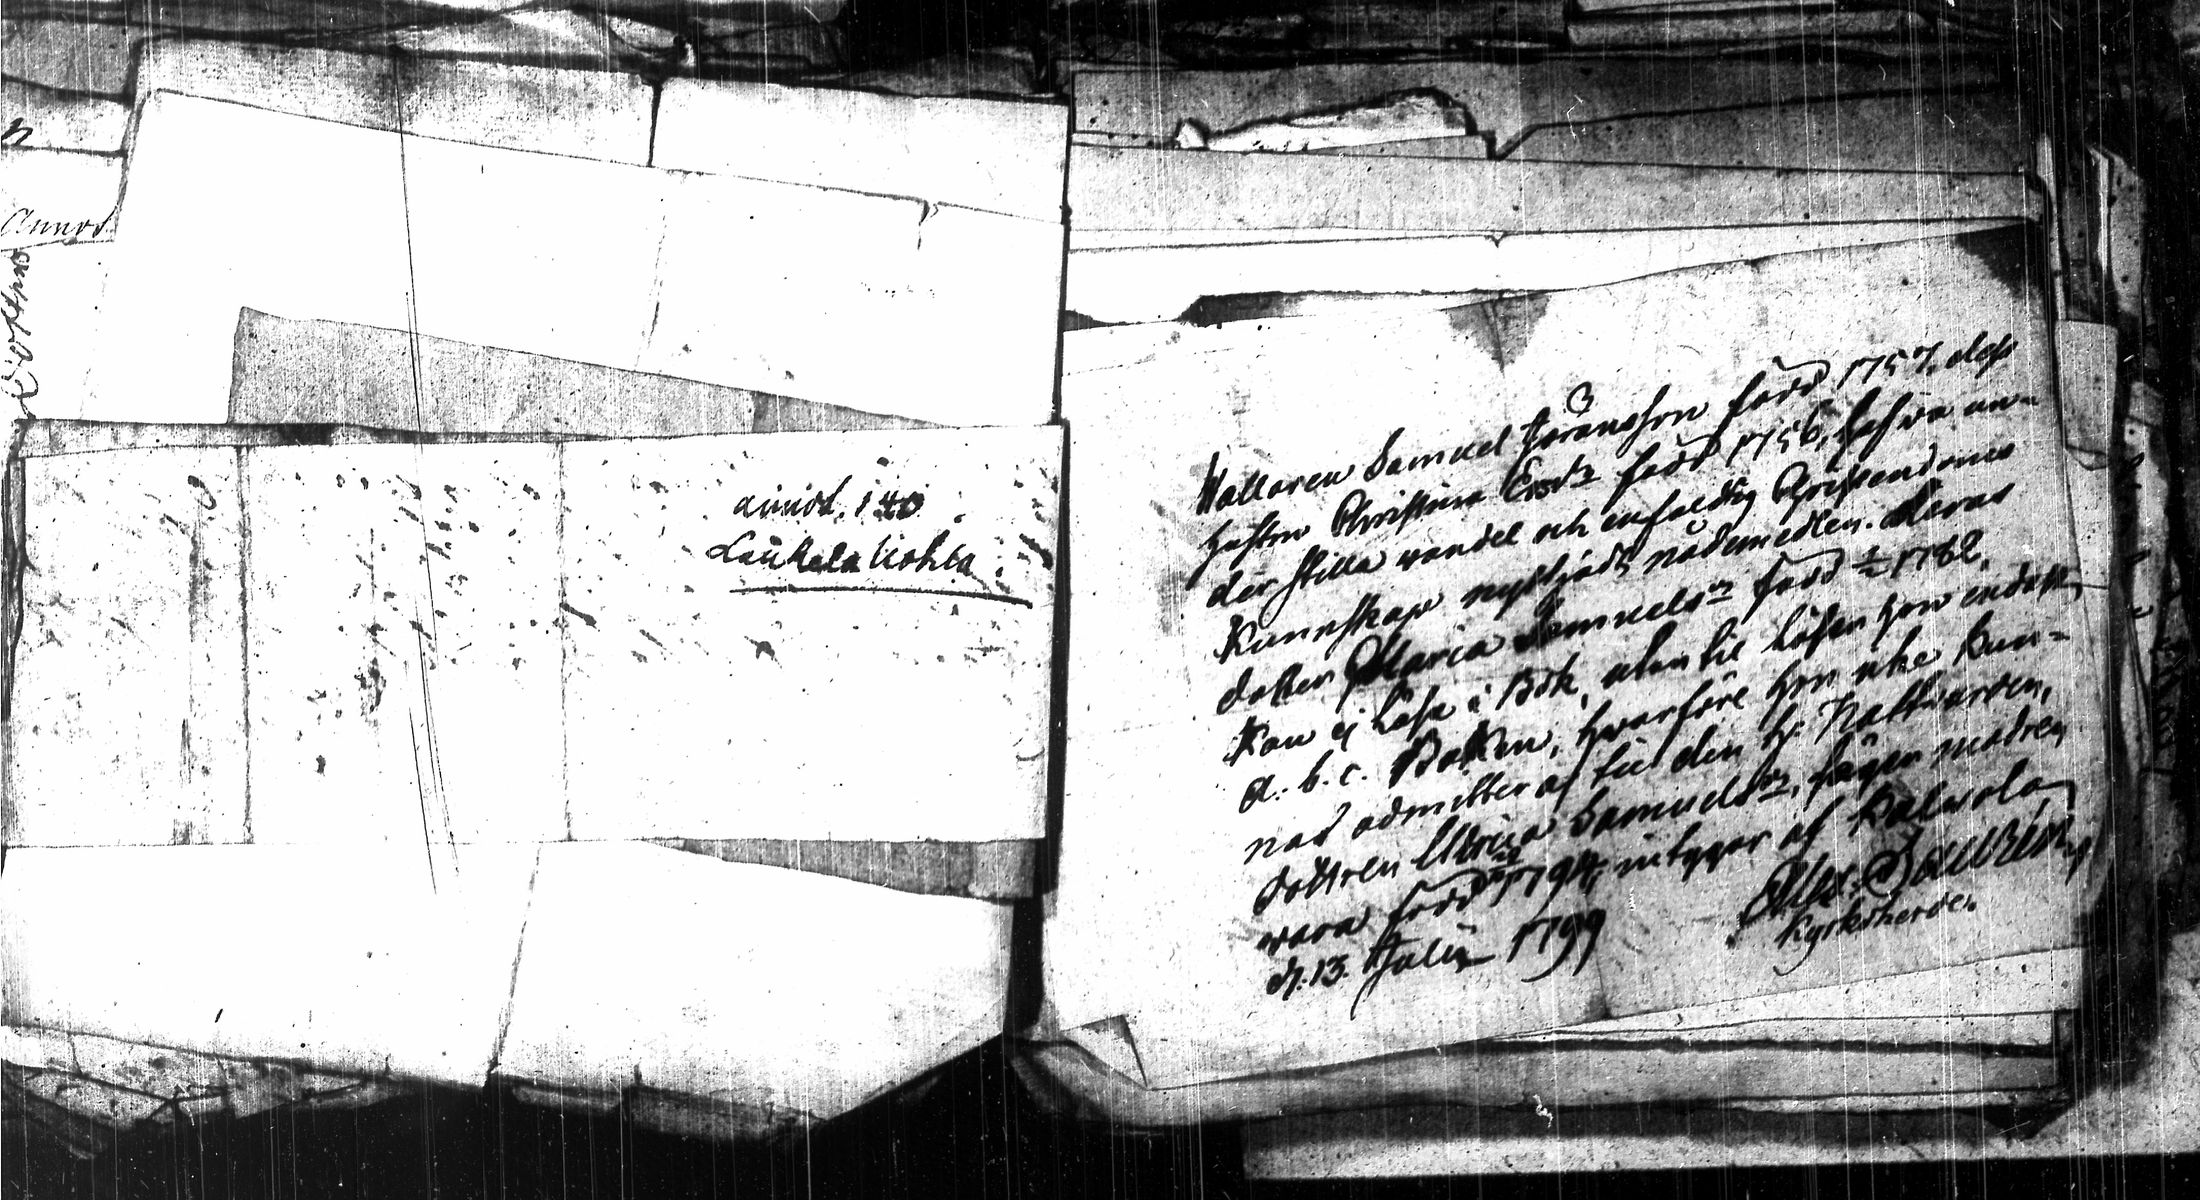 Annot
annot. 140
Laukela Uohla
Wallaren Samuel Jöransson född 1757, dess
hustru Christina Ersdr född 1756, hafwa un-
der stilla wandel och enfaldig Christendoms
Kunnskap nyttjadt nådemedlen. Deras
dotter Maria Samuelsdr född 1782,
Kan ej läsa i Bok, utan til läsen hon endast
a. b. c. Boken, hwarföre hon icke kun-
nat admitteras til den h. Nattvarden,
dottren Ulrica Samuelsdr, säger modren
wara född 1794, intygar af Kalvola
d. 13. Julii 1799
Kyrkoherde